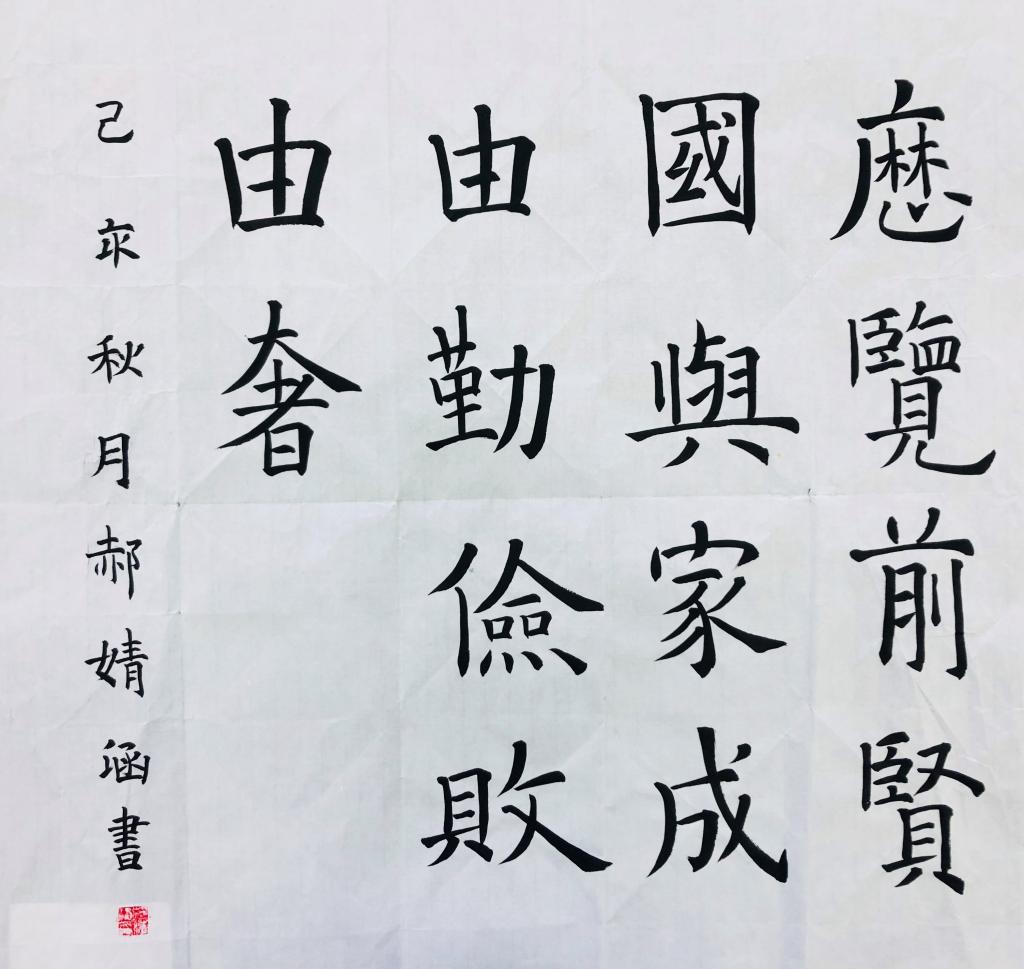 歷覽前賢
國與家成
由勤儉敗
由奢
己亥秋月郝婧涵書